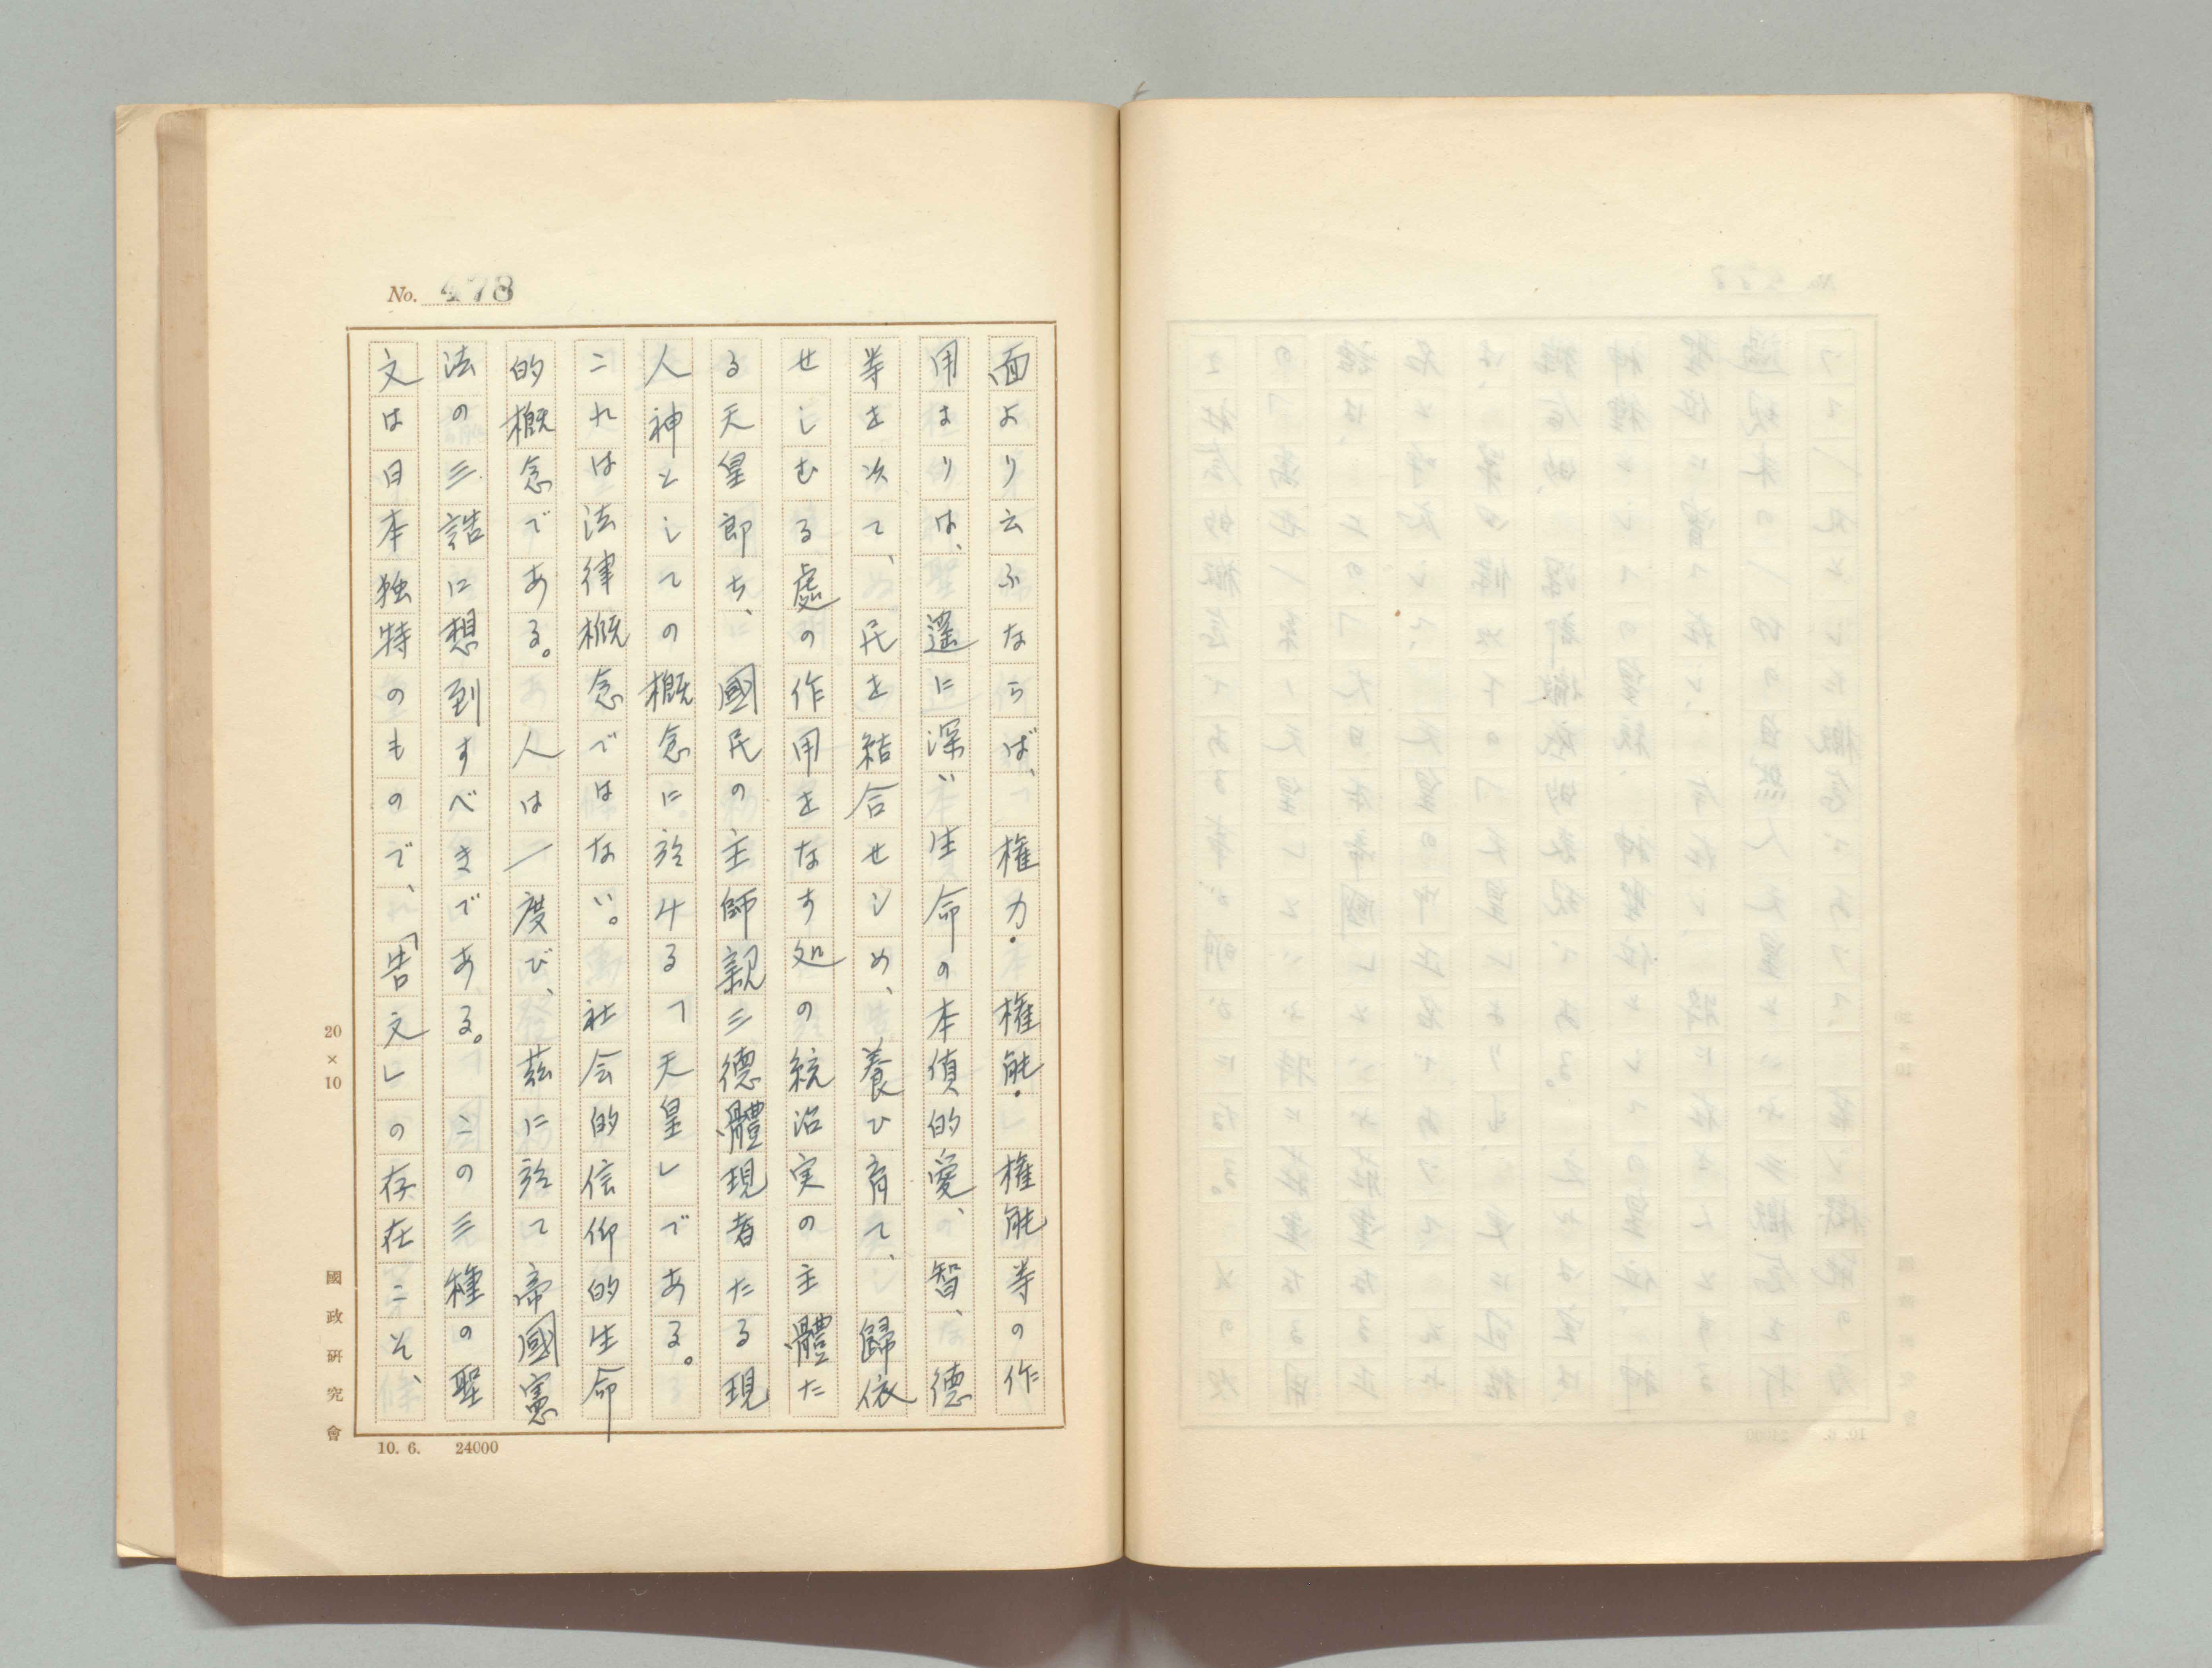 No. 478
面より云ふならば、権力・権能・権能等の作
用よりは、遥に深い生命の本偵的愛、智、徳
等を以て、民を結合せしめ、養ひ育て、歸依
せしむる處の作用をなす処の統治実の主體た
る天皇郎ち、國民の主師親三徳體現者たる現
人神としての概念に於ける「天皇」である。
これは法律概念ではない。社会的信仰的生命
的概念である。人は一度び、茲に於て帝國憲
法の三誥に想到すべきである。この三種の聖
文は日本独特のもので、「告文」の存在こそ、
20×10
國政研究會
10. 6. 24000